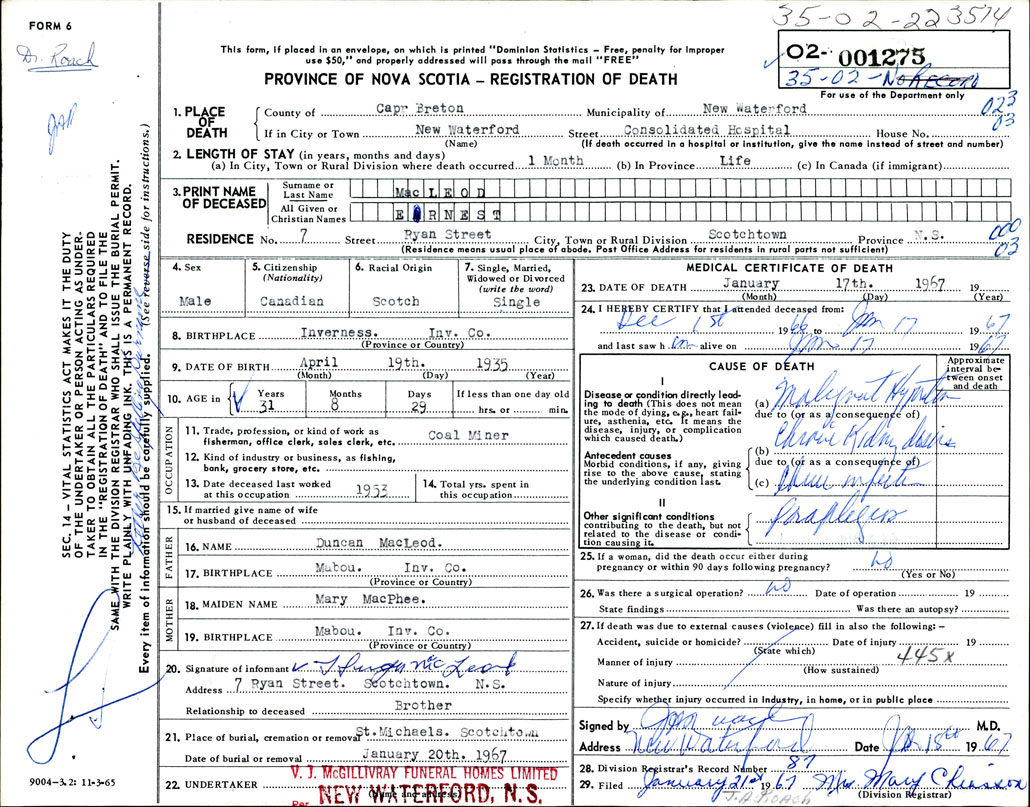 FORM 6
Dr. Roach
35-02-223574
This form, if placed in an envelope, on which is printed "Dominion Statistics – Free, penalty for improper
use $50," and properly addressed will pass through the mail "FREE"
PROVINCE OF NOVA SCOTIA – REGISTRATION OF DEATH
02- 001275
35-02- No Record
For use of the Department only
023
03
SEC. 14 – VITAL STATISTICS ACT MAKES IT THE DUTY
OF THE UNDERTAKER OR PERSON ACTING AS UNDER-
TAKER TO OBTAIN ALL THE PARTICULARS REQUIRED
IN THE "REGISTRATION OF DEATH" AND TO FILE THE
SAME WITH THE DIVISION REGISTRAR WHO SHALL ISSUE THE BURIAL PERMIT.
WRITE PLAINLY WITH UNFADING INK. THIS IS A PERMANENT RECORD.
Every item of information should be carefully supplied. (See reverse side for instructions.)
1. PLACE OF DEATH
County of Capr Breton Municipality of New Waterford
If in City or Town New Waterford Street Consolidated Hospital House No.
(Name) (If death occurred in a hospital or institution, give the name instead of street and number)
2. LENGTH OF STAY (in years, months and days)
(a) In City, Town or Rural Division where death occurred 1 Month (b) In Province Life (c) In Canada (if immigrant)
3. PRINT NAME OF DECEASED
Surname or Last Name MacLEOD
All Given or Christian Names ERNEST
RESIDENCE No. 7 Street Ryan Street City, Town or Rural Division Scotchtown Province N.S.
000
03
(Residence means usual place of abode. Post Office Address for residents in rural parts not sufficient)
4. Sex
Male
5. Citizenship (Nationality)
Canadian
6. Racial Origin
Scotch
7. Single, Married, Widowed or Divorced (write the word)
Single
8. BIRTHPLACE Inverness. Inv. Co.
(Province or Country)
9. DATE OF BIRTH April 19th. 1935
(Month) (Day) (Year)
10. AGE in Years 31 Months 8 Days 29 If less than one day old hrs. or min.
OCCUPATION
11. Trade, profession, or kind of work as fisherman, office clerk, sales clerk, etc. Coal Miner
12. Kind of industry or business, as fishing, bank, grocery store, etc.
13. Date deceased last worked at this occupation 1953
14. Total yrs. spent in this occupation
15. If married give name of wife or husband of deceased
FATHER
16. NAME Duncan MacLeod.
17. BIRTHPLACE Mabou. Inv. Co.
(Province or Country)
MOTHER
18. MAIDEN NAME Mary MacPhee.
19. BIRTHPLACE Mabou. Inv. Co.
(Province or Country)
20. Signature of informant
Address 7 Ryan Street. Scotchtown. N.S.
Relationship to deceased Brother
21. Place of burial, cremation or removal St.Michaels. Scotchtown
Date of burial or removal January 20th. 1967
22. UNDERTAKER V. J. McGILLIVRAY FUNERAL HOMES LIMITED
Per NEW WATERFORD, N. S.
9004-3.2: 11-3-65
MEDICAL CERTIFICATE OF DEATH
23. DATE OF DEATH January 17th. 1967 19
(Month) (Day) (Year)
24. I HEREBY CERTIFY that I attended deceased from:
Dec 1st 1966 to Jan 17 1967
and last saw him alive on Jan 17 1967
CAUSE OF DEATH
Approximate interval between onset and death
I
Disease or condition directly leading to death (This does not mean the mode of dying, e.g., heart failure, asthenia, etc. It means the disease, injury, or complication which caused death.)
(a) Malignant
due to (or as a consequence of)
Antecedent causes
Morbid conditions, if any, giving rise to the above cause, stating the underlying condition last.
(b) Chronic Kidney
due to (or as a consequence of)
(c)
II
Other significant conditions contributing to the death, but not related to the disease or condition causing it.
paraplegia
25. If a woman, did the death occur either during pregnancy or within 90 days following pregnancy? no
(Yes or No)
26. Was there a surgical operation? no Date of operation 19
State findings Was there an autopsy?
27. If death was due to external causes (violence) fill in also the following: –
Accident, suicide or homicide? Date of injury 19
(State which)
Manner of injury 445x
(How sustained)
Nature of injury
Specify whether injury occurred in Industry, in home, or in public place
Signed by M.D.
Address New Waterford Date Jan 18th 1967
28. Division Registrar's Record Number 87
29. Filed January 21st 1967 Mrs Mary Chiasson
(Division Registrar)
J.A. ROACH